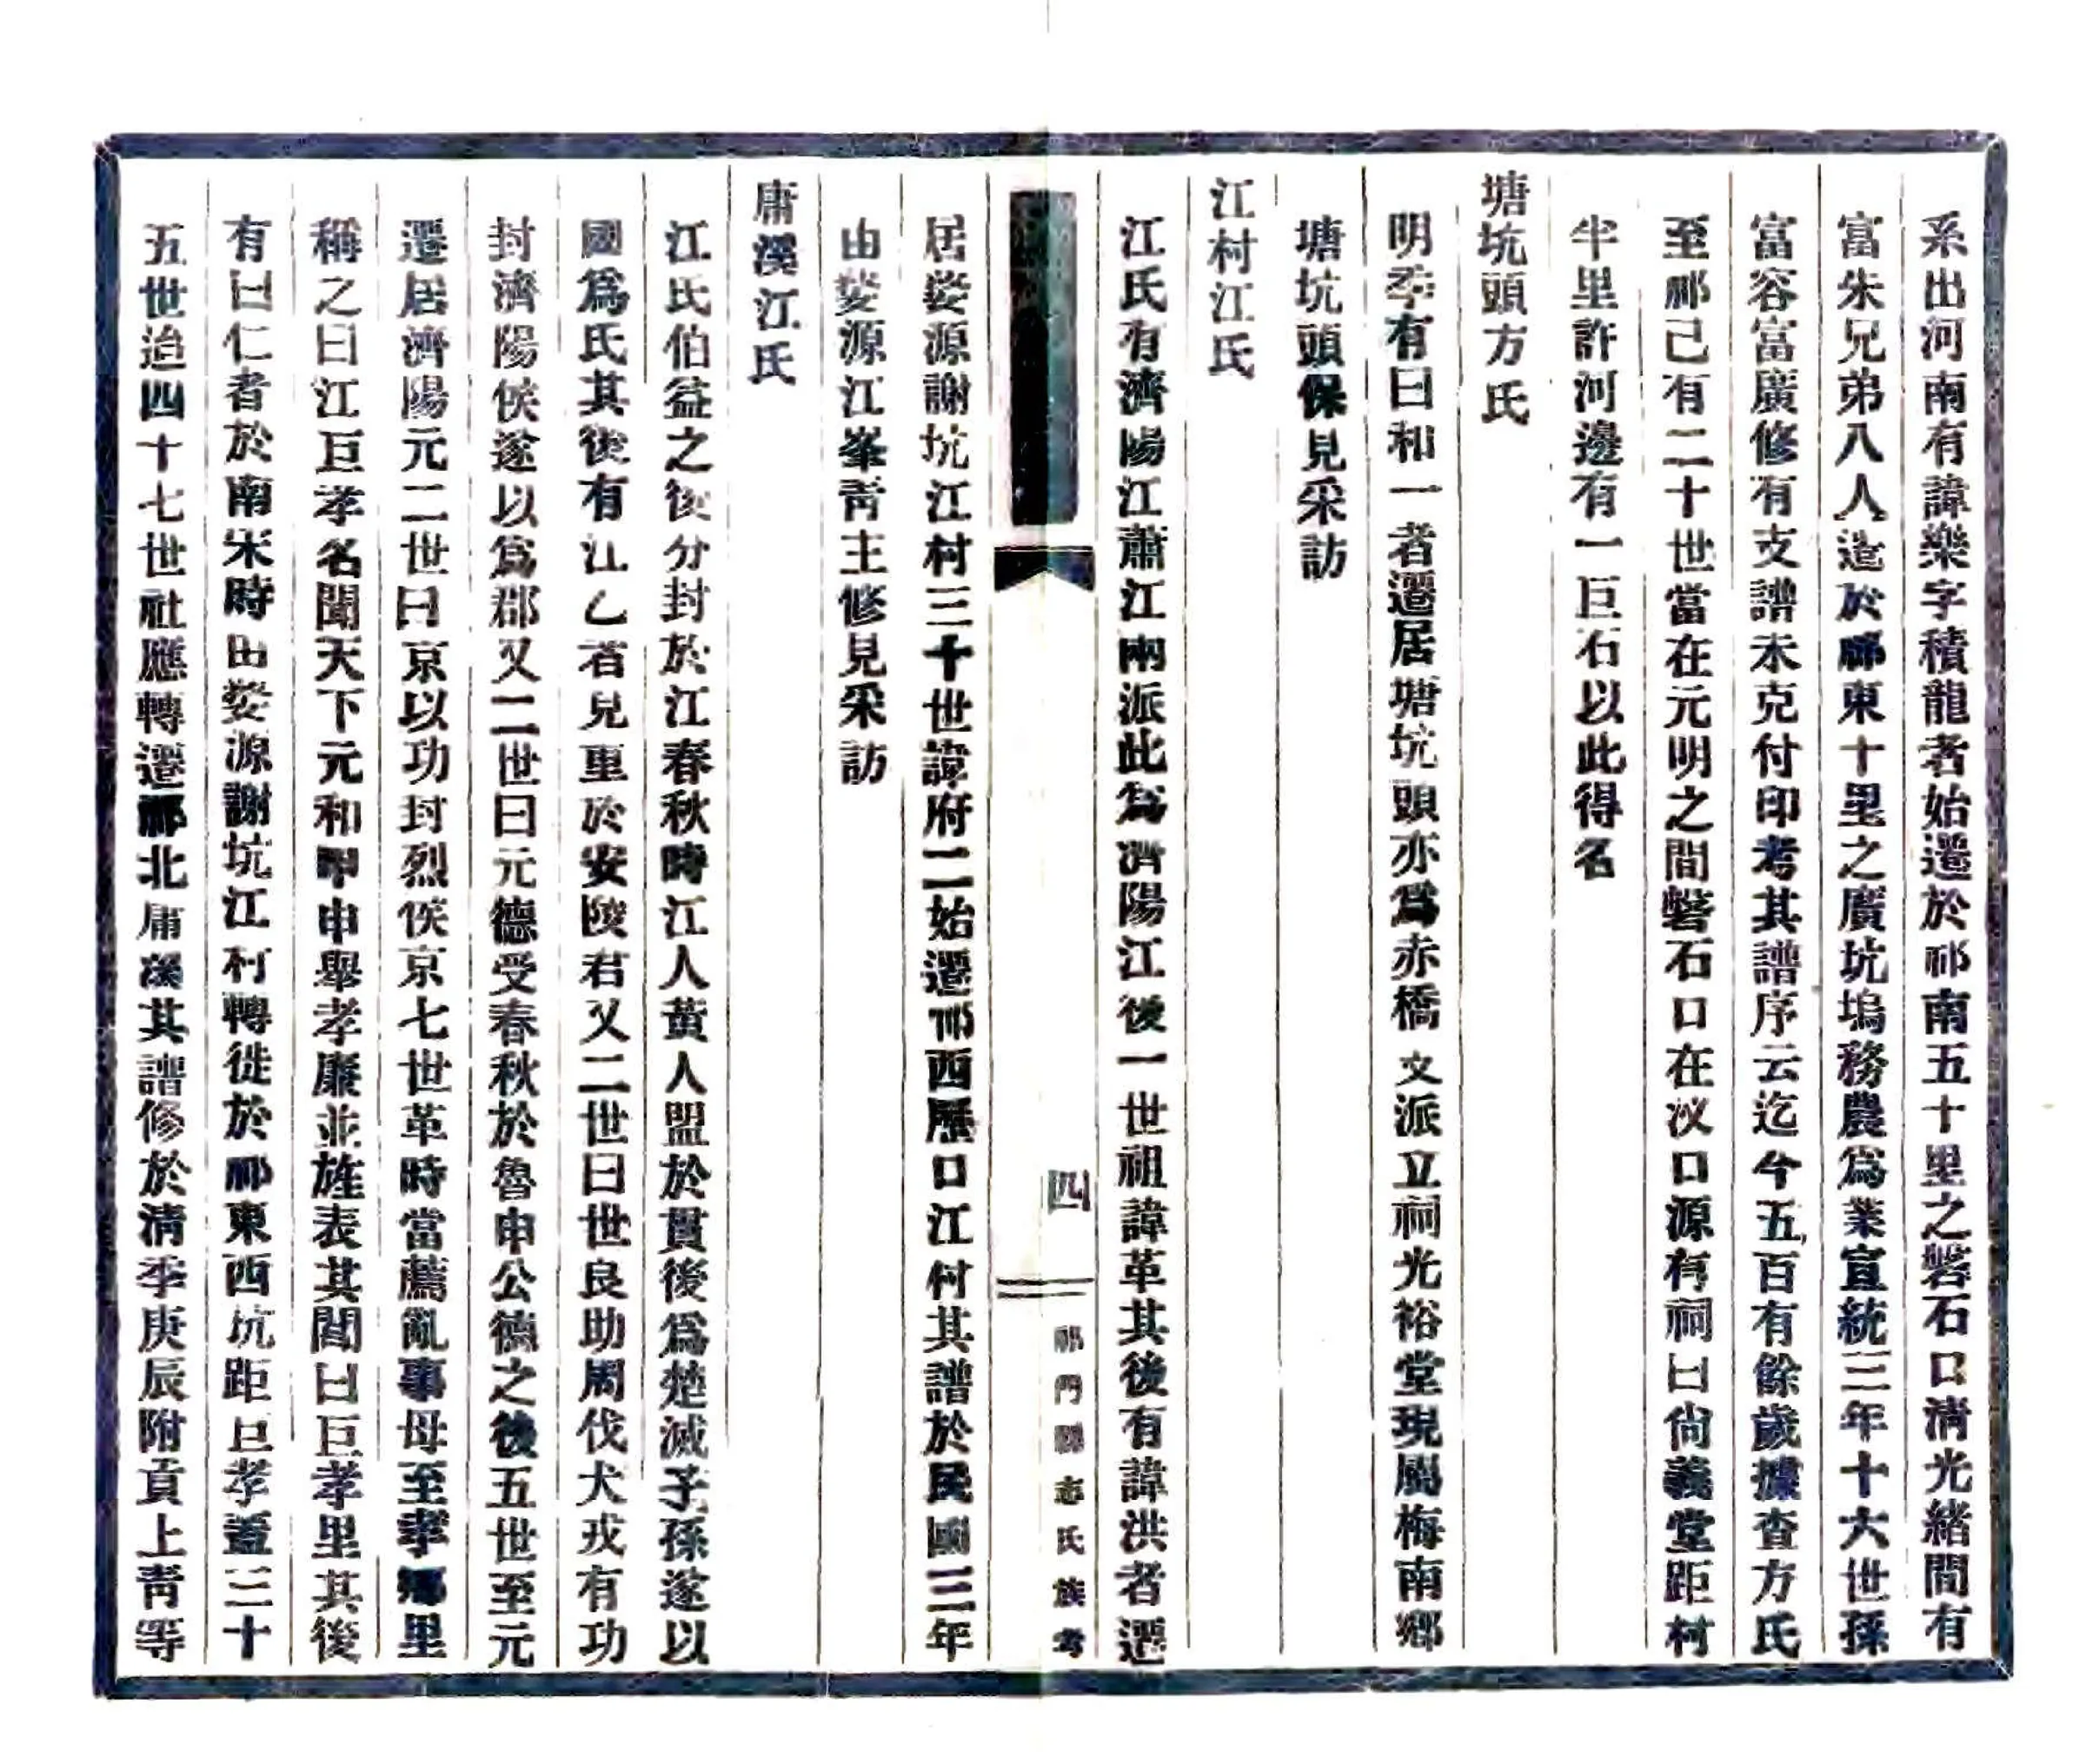 系出河南有諱樂字積龍者始遷於祁南五十里之磐石口淸光緒間有
富朱兄弟八人造於祁東十里之廣坑塢務農爲業宣統三年十六世孫
富容富廣修有支譜未克付印考其譜序云迄今五百有餘歲據查方氏
至祁已有二十世當在元明之間磐石口在汊口源有祠曰尙義堂距村
半里許河邊有一巨石以此得名
塘坑頭方氏
明季有曰和一者遷居塘坑頭亦爲赤橋文派立祠光裕堂現屬梅南鄉
塘坑頭保見采訪
江村江氏
江氏有濟陽江蕭江兩派此爲濟陽江後一世祖諱革其後有諱洪者遷
居婺源謝坑江村三十世諱府二始遷祁西歷口江村其譜於民國三年
由婺源江峯靑主修見采訪
庸溪江氏
江氏伯益之後分封於江春秋時江人黃人盟於貫後爲楚滅子孫遂以
國爲氏其後有江乙者見重於安陵君又二世曰世良助周伐犬戎有功
封濟陽侯遂以爲郡又二世曰元德受春秋於魯申公德之後五世至元
遷居濟陽元二世曰京以功封烈侯京七世革時當薦亂事母至孝鄉里
稱之曰江巨孝名聞天下元和甲申舉孝廉並旌表其閭曰巨孝里其後
有曰仁者於南宋時由婺源謝坑江村轉徙於祁東西坑距巨孝蓋三十
五世迨四十七世社應轉遷祁北庸溪其譜修於淸季庚辰附貢上靑等
四
祁門縣志氏族考